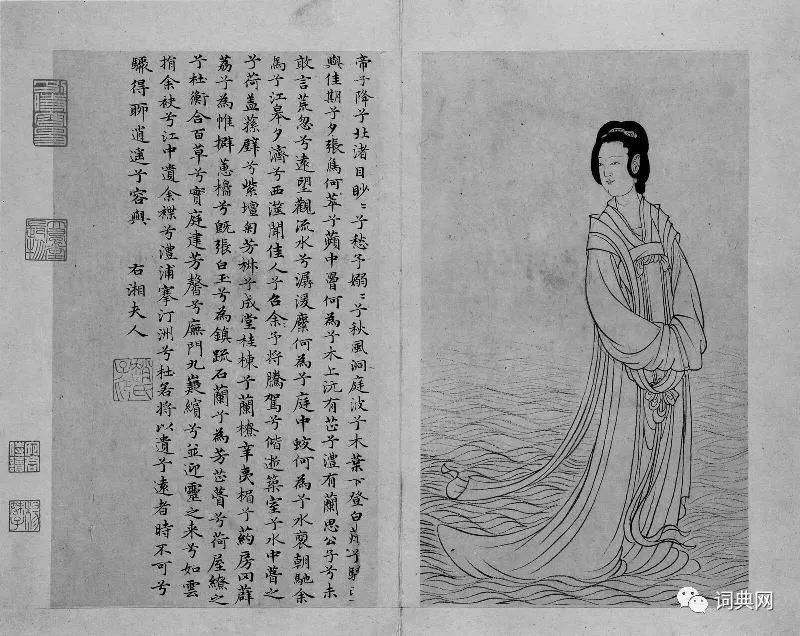 帝子降兮北渚目眇〻兮愁予嫋〻兮秋風洞庭波兮木葉下登白薠兮騁
與佳期兮夕張鳥何萃兮蘋中罾何為兮木上沅有芷兮澧有蘭思公子兮未
敢言荒忽兮遠望觀流水兮潺湲麋何為兮庭中蛟何為兮水裔朝馳余
馬兮江皋夕濟兮西澨聞佳人兮召余兮将騰駕兮偕逝築室兮水中葺之
兮荷蓋蓀壁兮紫壇匊芳椒兮成堂桂棟兮蘭橑辛夷楣兮葯房罔薜
荔兮為帷擗蕙櫋兮既張白玉兮為鎮疏石蘭兮為芳芷葺兮荷屋繚之
兮杜衡合百草兮實庭建芳馨兮廡門九嶷繽兮並迎靈之来兮如雲
捐余袂兮江中遺余褋兮澧浦搴汀洲兮杜若将以遺兮遠者時不可兮
驟得聊逍遥兮容與 右湘夫人
词典网